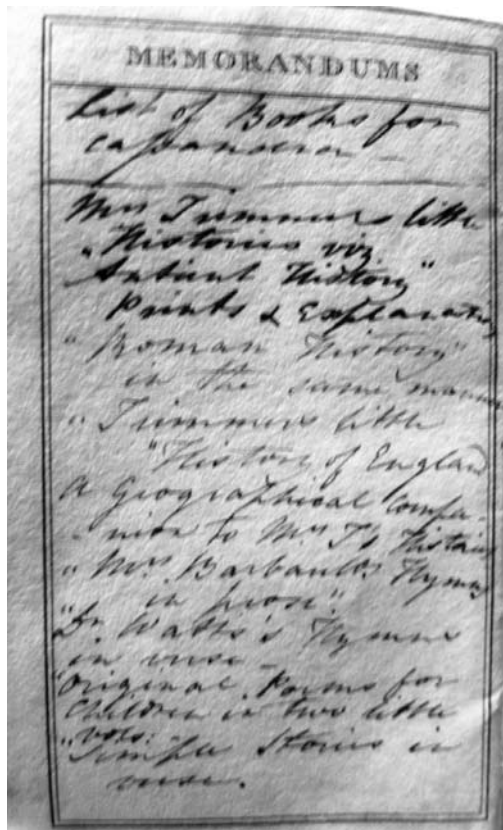 MEMORANDUMS
List of Books for
Cassandra —
Mrs Trimmers little
"Histories viz
Antient History"
Prints & Explanation
"Roman History"
in the same manner
"Trimmers little
"History of England
A Geographical Compa-
-nion to Mrs T's Histories
"Mrs Barbauld's Hymns
in prose."
"Dr Watts's Hymns
in verse —
"Original Poems for
Children in two little
vols:"
"Simple Stories in
verse.